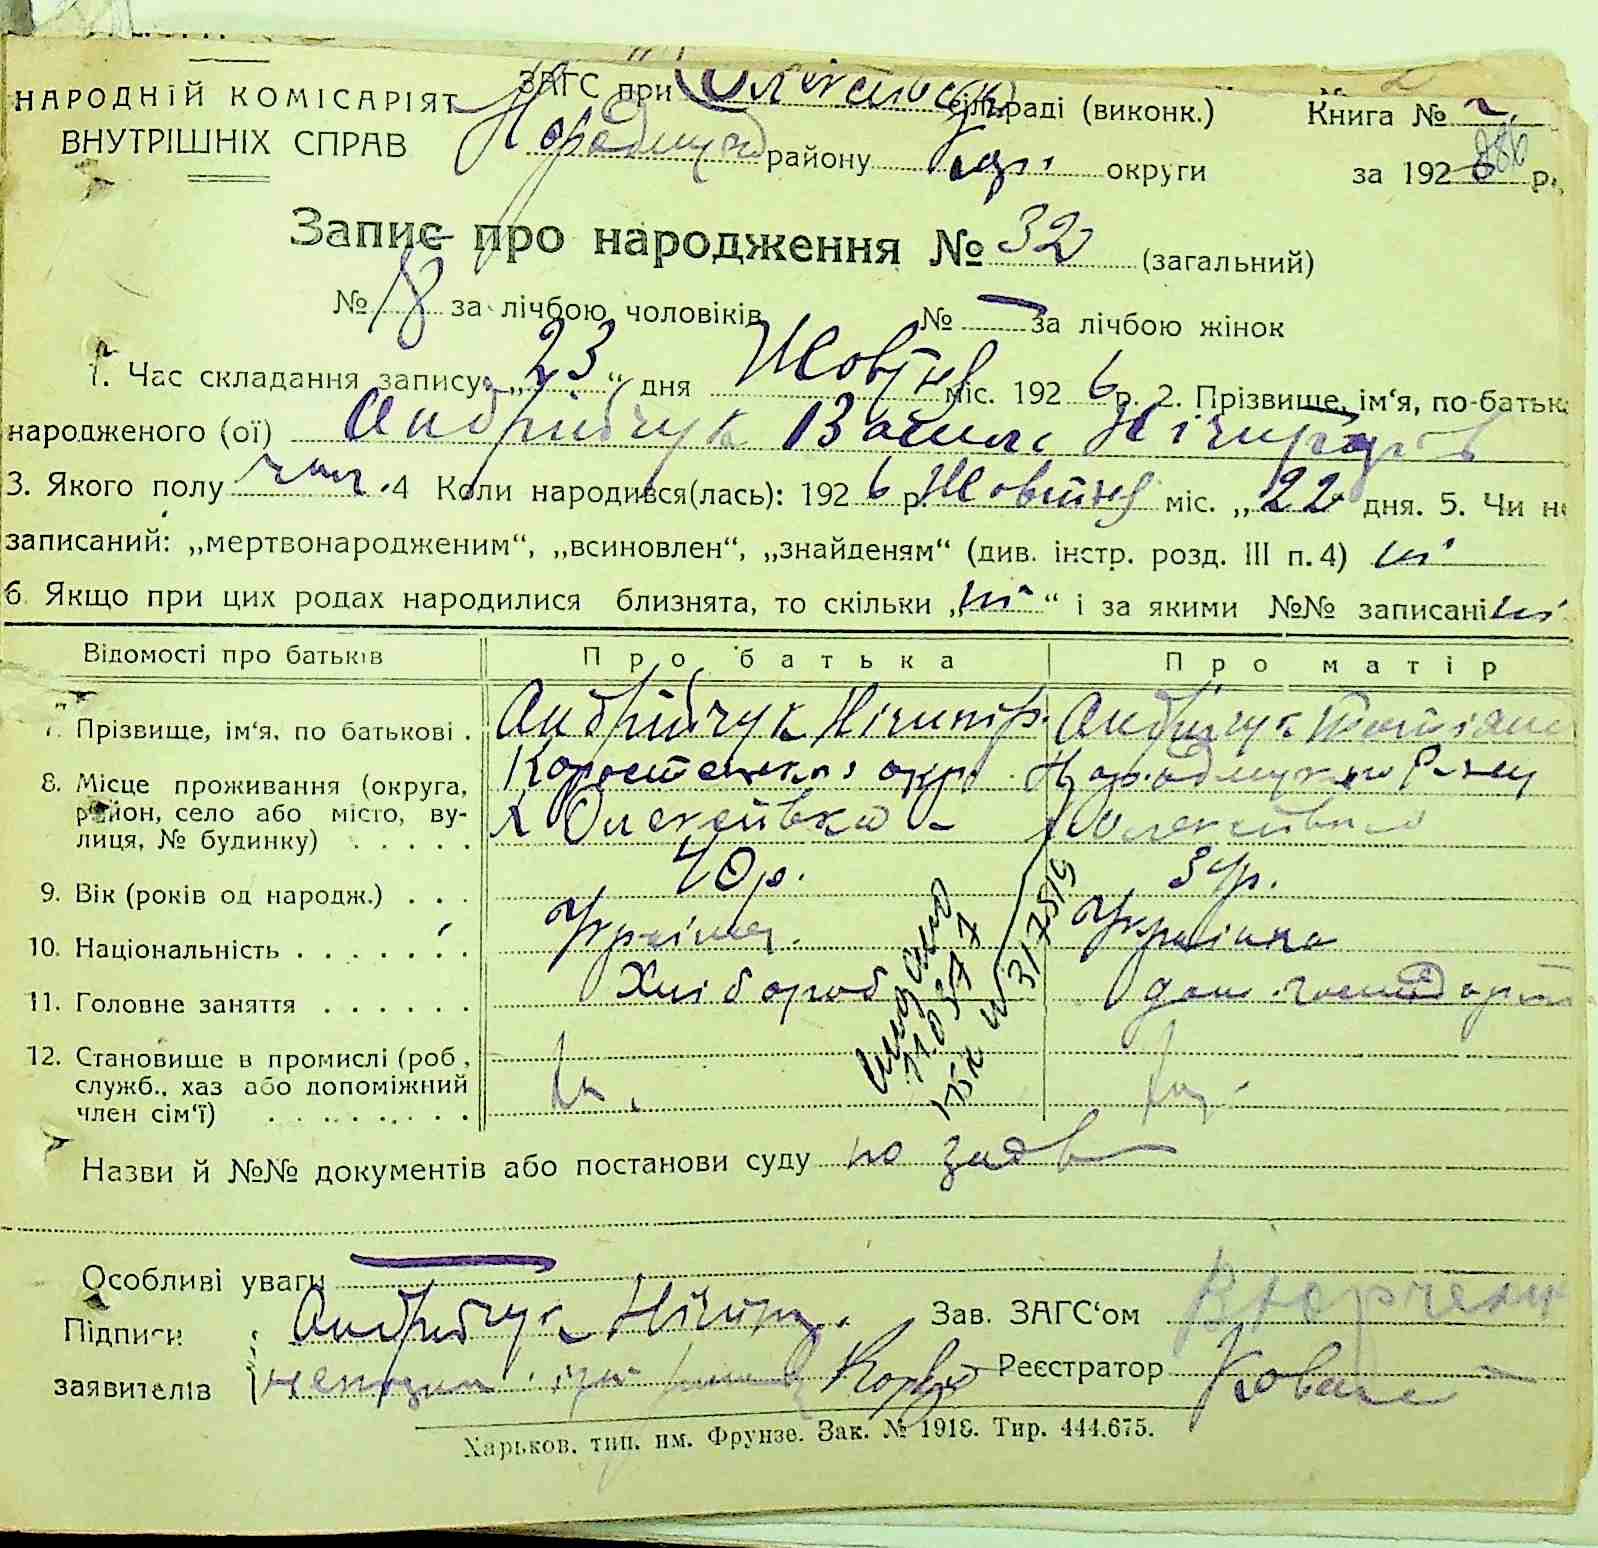 НАРОДНІЙ КОМІСАРІЯТ
ВНУТРІШНІХ СПРАВ
ЗАГС при Олексіївск сільраді (виконк.)
Народицьк району Кор. округи
Книга № 2
за 1926 р.
Запис про народження № 32 (загальний)
№ 18 за лічбою чоловіків № — за лічбою жінок
1. Час складання запису: „23“ дня Жовтня міс. 1926 р. 2. Прізвище, ім‘я, по-батьк
народженого (ої) Андрійчук Василь Нічипорів
3. Якого полу чол. 4 Коли народився(лась): 1926 р. Жовтня міс. „22 дня. 5. Чи не
записаний: „мертвонародженим“, „всиновлен“, „знайденям“ (див. інстр. розд. III п. 4) ні
6. Якщо при цих родах народилися близнята, то скільки „ні“ і за якими №№ записані ні
Відомості про батьків Про батька Про матір
7. Прізвище, ім‘я, по батькові . Андрійчук Нічипір. Андрійчук Тетіяна
8. Місце проживання (округа, район, село або місто, вулиця, № будинку) Коростенська окр. Народицького р-ну
Олексіївка Олексіївка
9. Вік (років од народж.) . . . 40 р. 34 р.
10. Національність . . . . . . . Українец. Українка
11. Головне заняття . . . . . . Хлібороб дом. господар
12. Становище в промислі (роб., служб., хаз або допоміжний член сім‘ї) . . . . . . . . . Хаз.
Назви й №№ документів або постанови суду по заяв
Особливі уваги —
Підписи заявителів Андрийчук Нічип. Зав. ЗАГС‘ом
Реєстратор Коваль
Харьков. тип. им. Фрунзе. Зак. № 1918. Тир. 444.675.